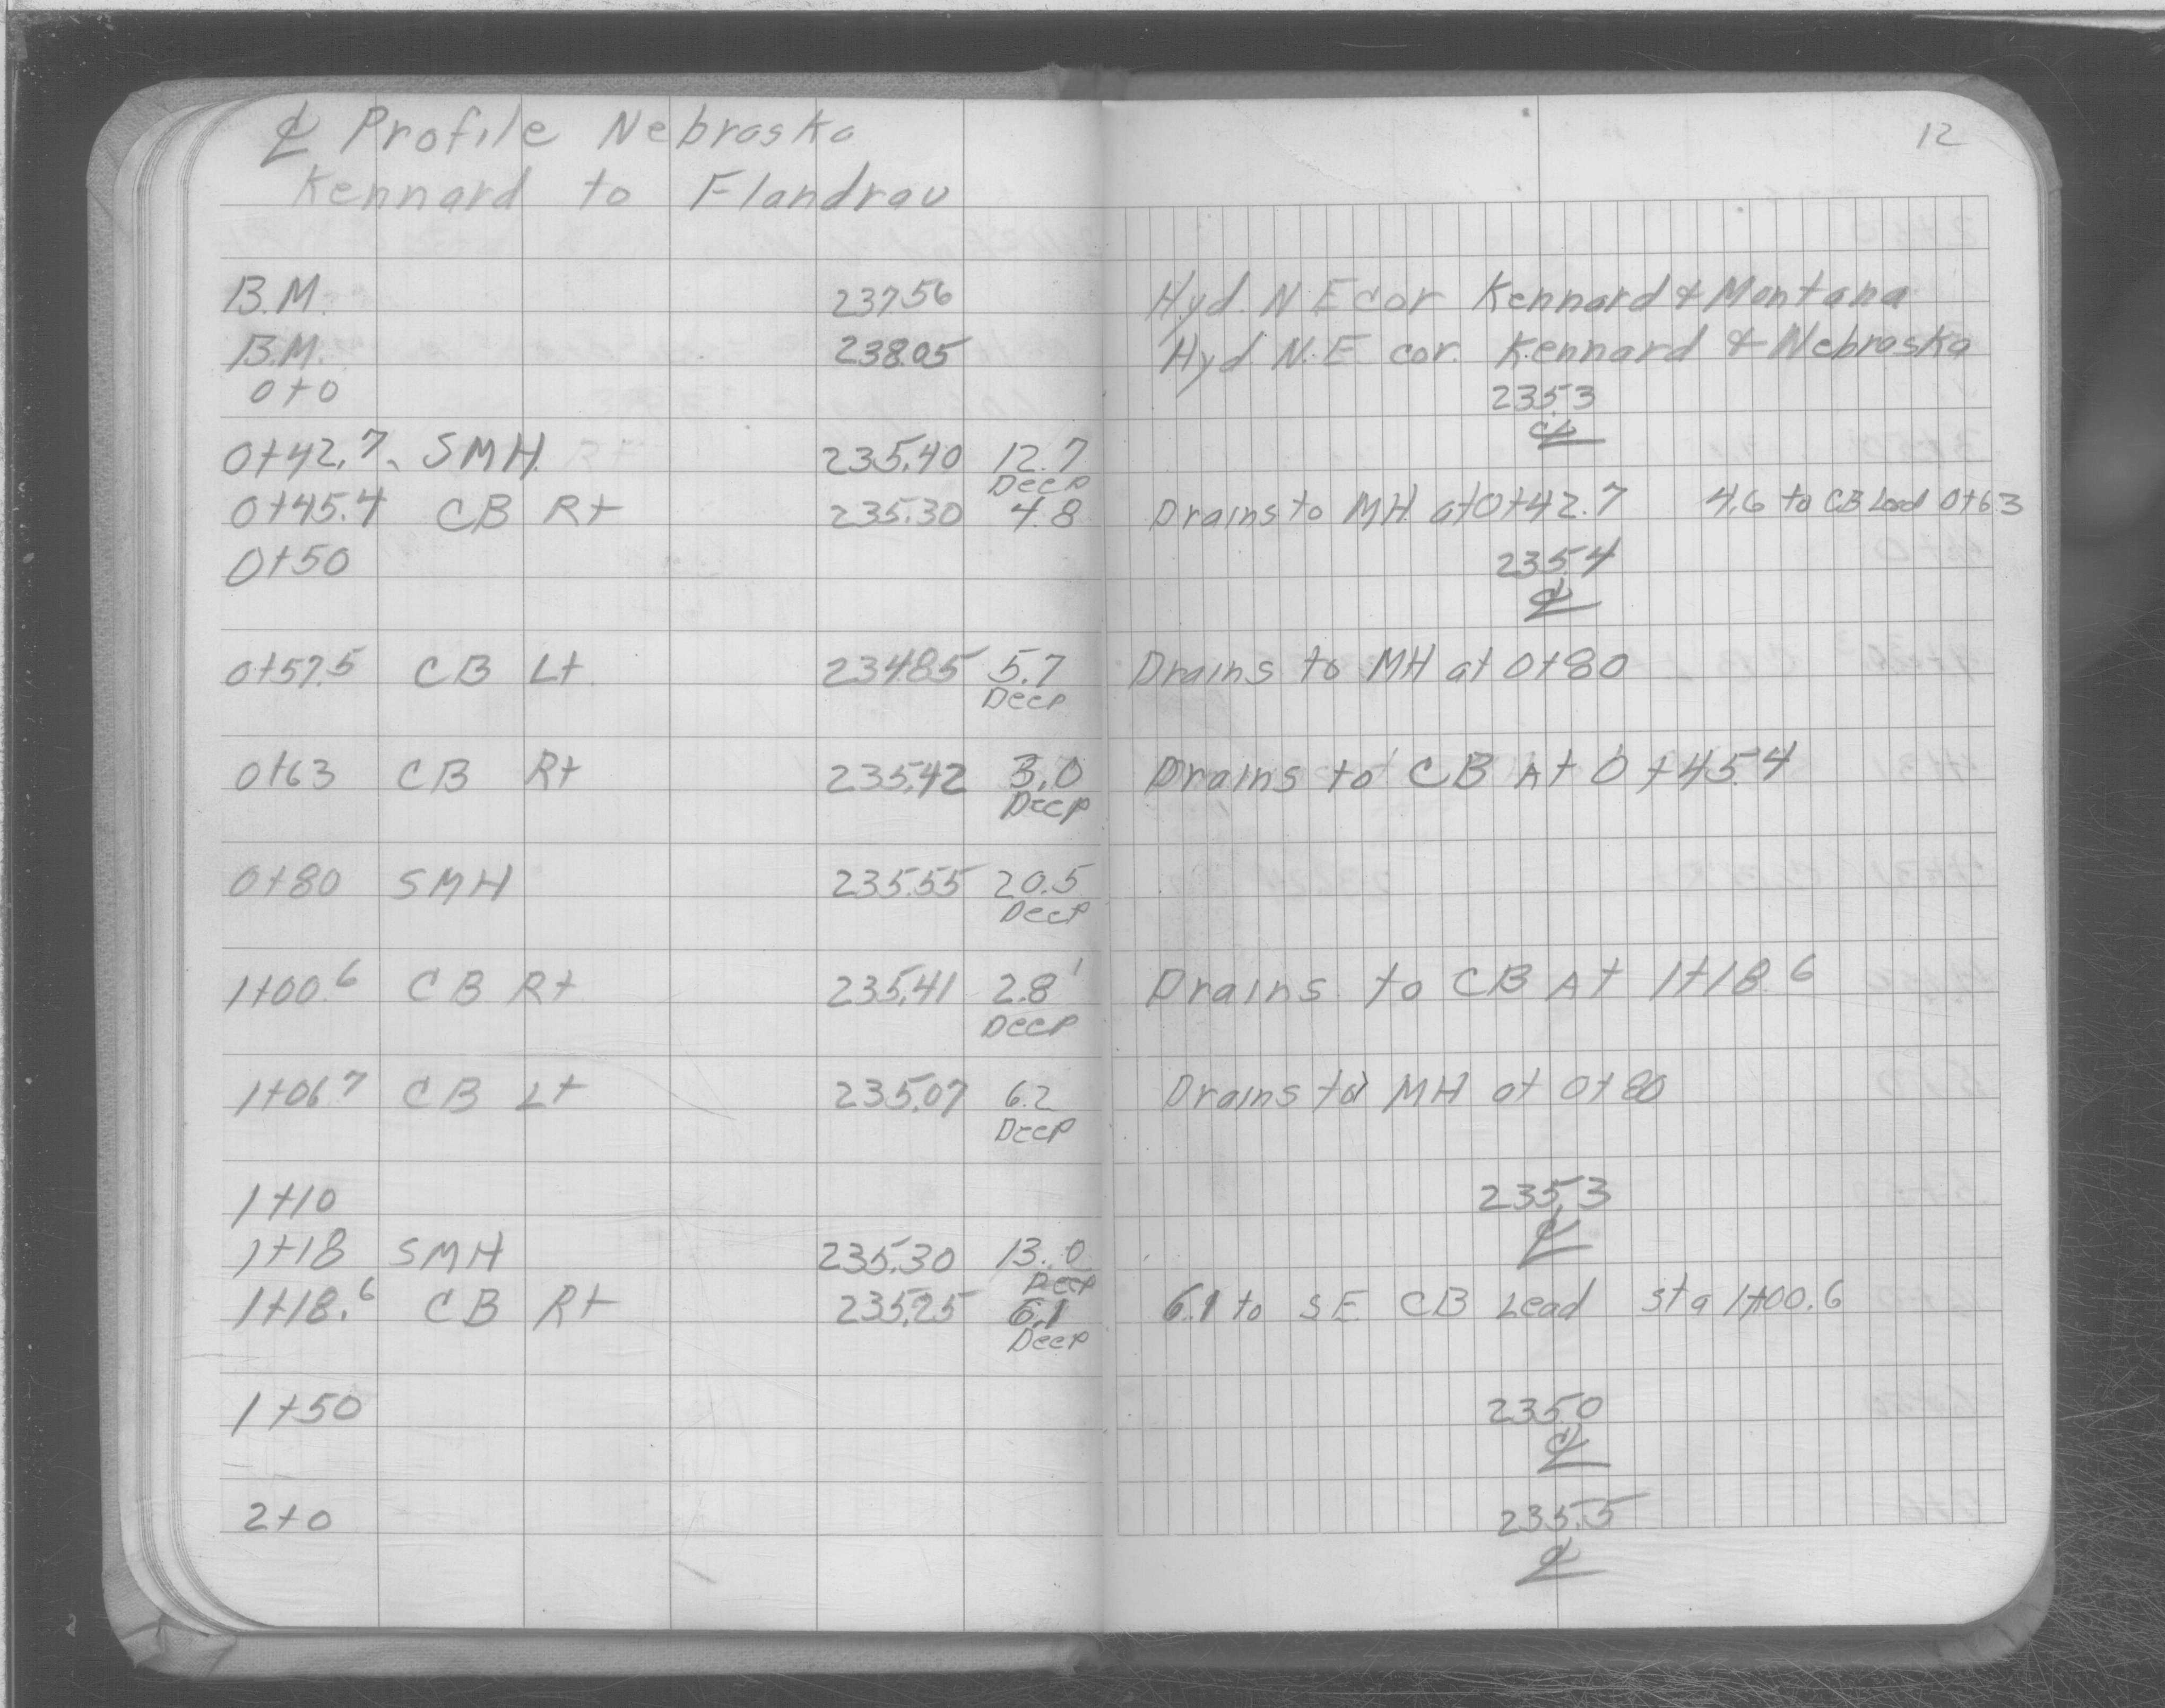 ℄ Profile Nebraska
Kennard to Flandrau
12
B.M. 237.56 Hyd. N.E cor Kennard & Montana
B.M. 238.05 Hyd. N.E cor. Kennard & Nebraska
0+0 235.3
℄
0+42.7 SMH 235.40 12.7
Deep
0+45.4 CB Rt 235.30 4.8 Drains to MH at 0+42.7 4.6 to CB Lead 0+63
0+50 235.4
℄
0+57.5 CB Lt 234.85 5.7 Drains to MH at 0+80
Deep
0+63 CB Rt 235.42 3.0 Drains to CB At 0+45.4
Deep
0+80 SMH 235.55 20.5
Deep
1+00.6 CB Rt 235.41 2.8' Drains to CB At 1+18.6
Deep
1+06.7 CB Lt 235.07 6.2 Drains to MH at 0+80
Deep
1+10 235.3
℄
1+18 SMH 235.30 13.0
Deep
1+18.6 CB Rt 235.25 6.1 6.1 to SE CB Lead sta 1+00.6
Deep
1+50 235.0
℄
2+0 235.5
℄